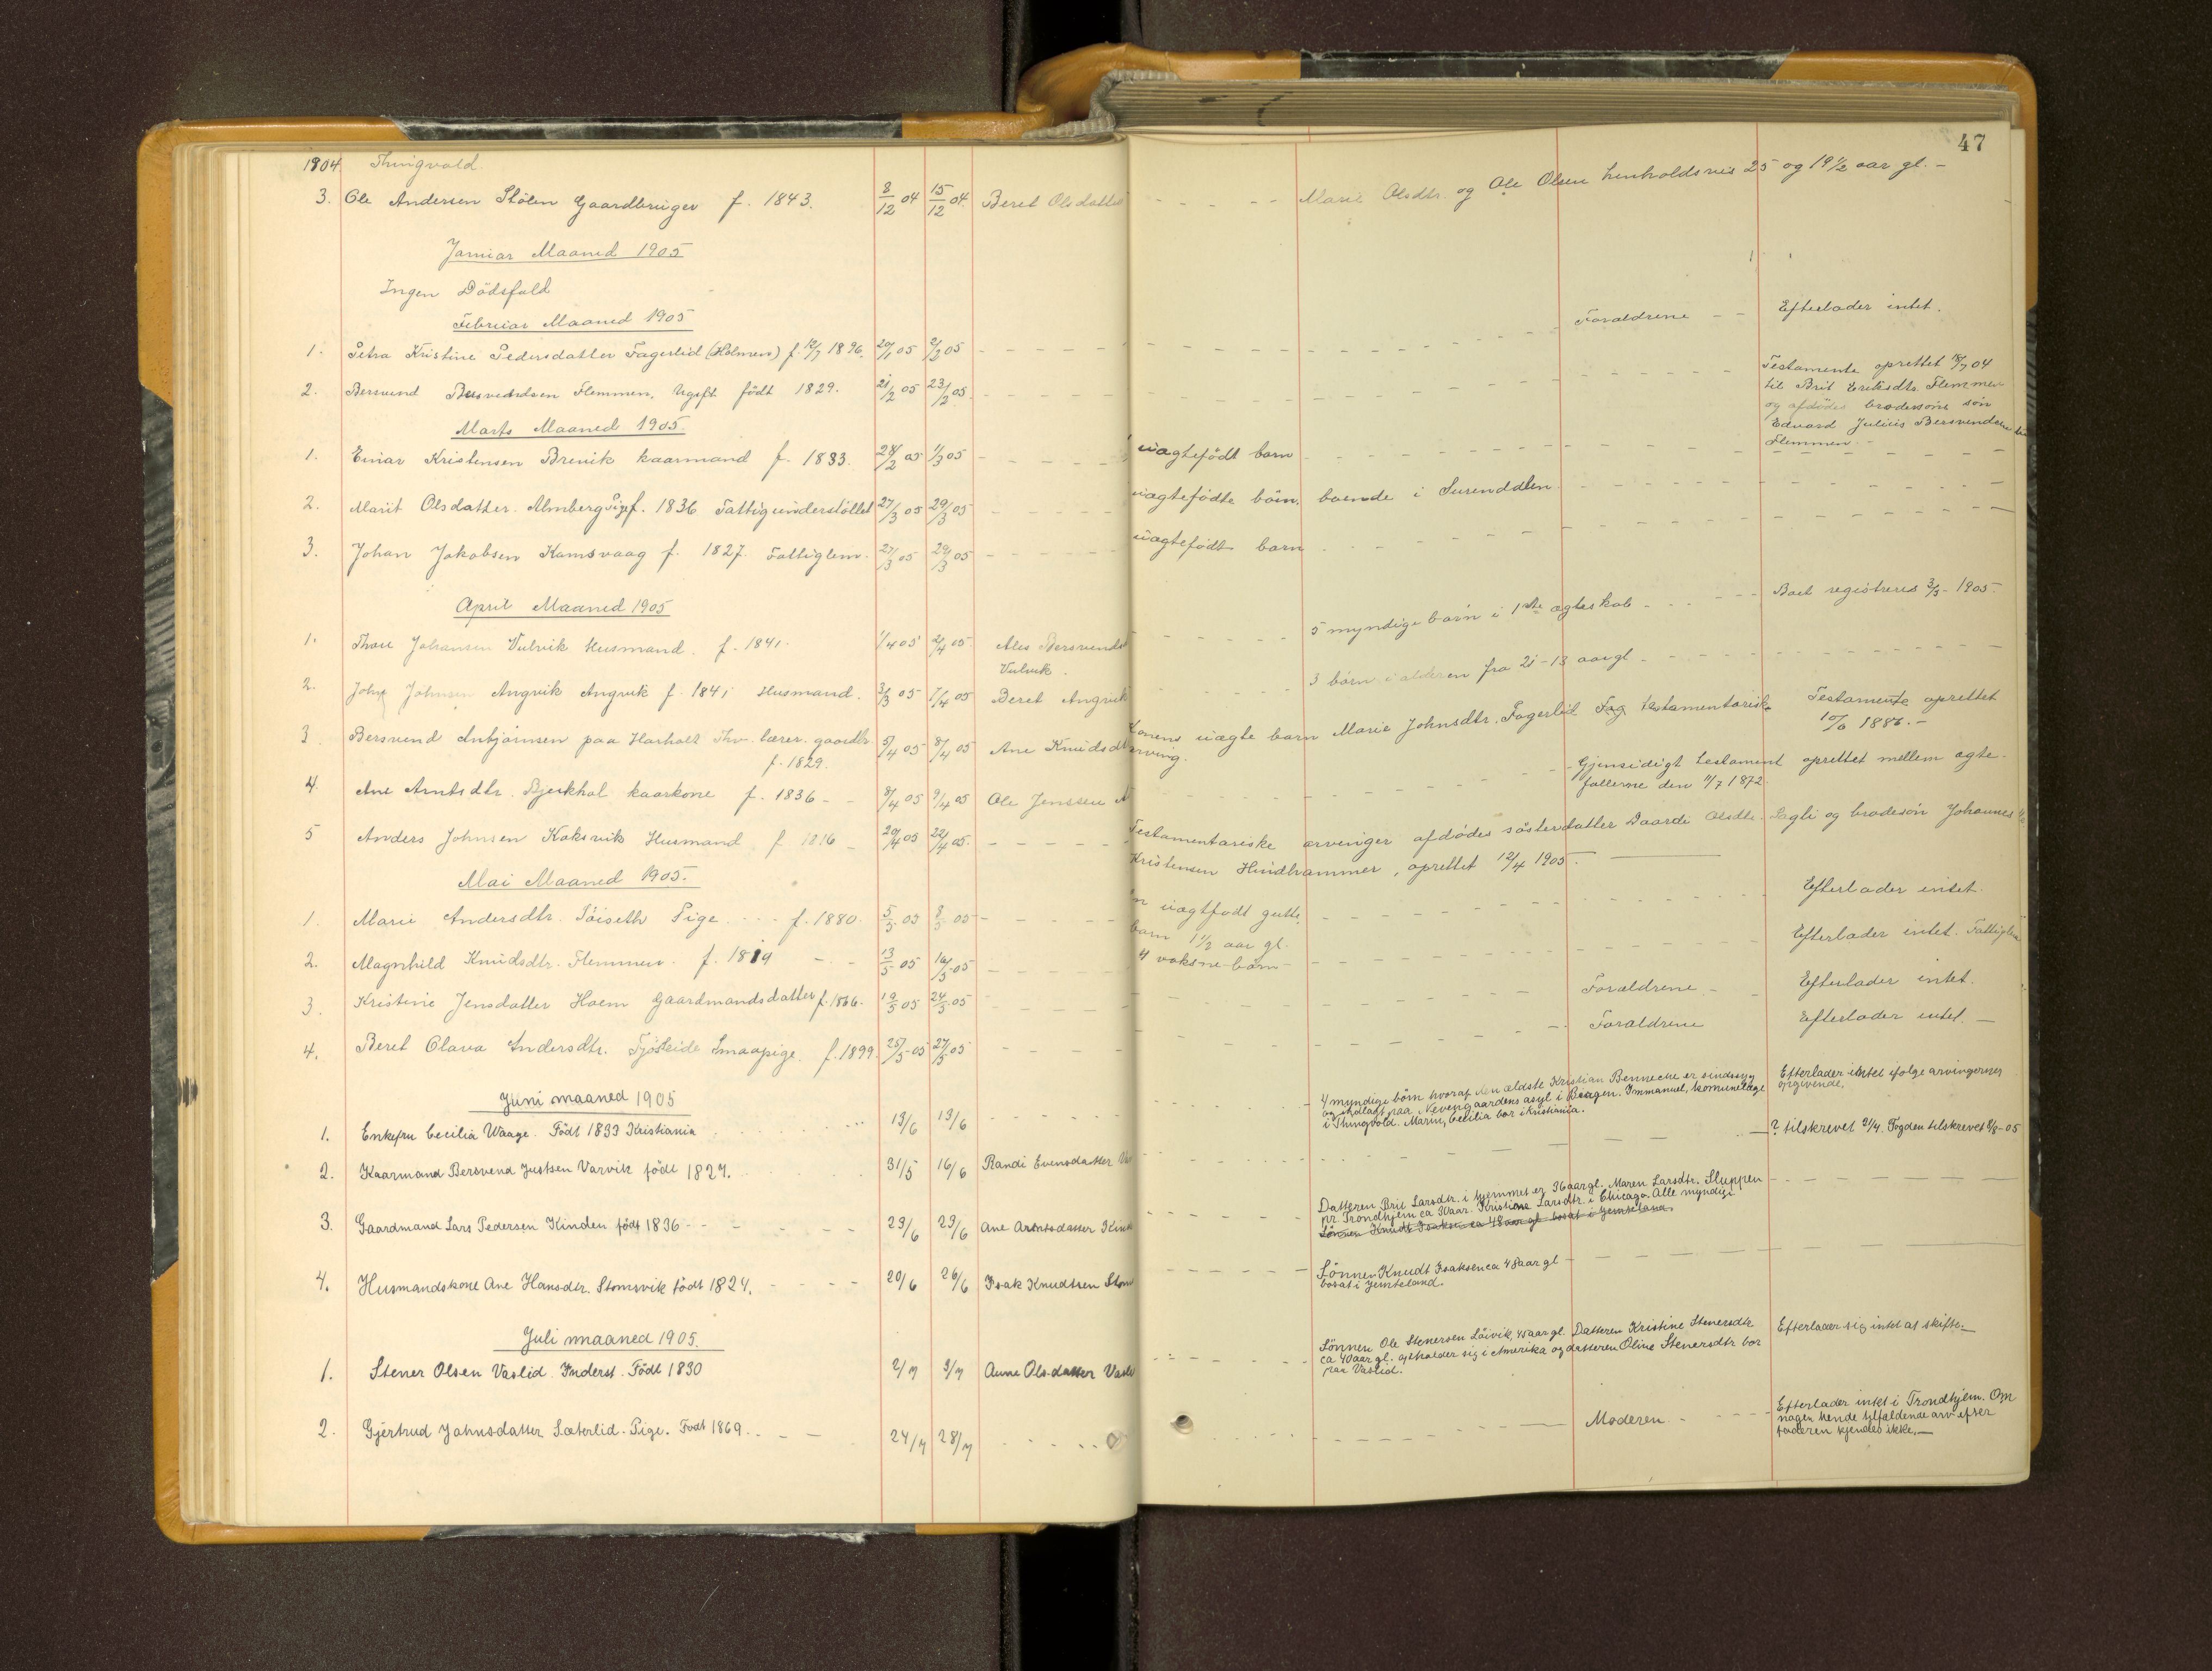 47
1904 Thingvold.
3. Ole Andersen Stölen Gaardbruger f. 1843. 8/12 04 15/12 04. Beret Olsdatter - - - - - Marie Olsdtr. og Ole Olsen henholdsvis 25 og 19 1/2 aar gl. -
Januar Maaned 1905
Ingen Dödsfald
Februar Maaned 1905
1. Petra Kristine Pedersdatter Fagerlid (Holmen) f. 12/7 1896. 20/1 05 2/2 05 - - - - Forældrene - - Efterlader intet.
2. Bersvend Bersvendsen Flemmen, Ugift födt 1829. 21/2 05 23/2 05. - - - - Testamente oprettet 18/7 04
til Brit Eriksdtr. Flemmen
og afdödes brodersöns sön
Edvard Julius Bersvendsen
Flemmen. -
Marts Maaned 1905.
1. Einar Kristensen Brevik kaarmand f. 1833. 28/2 05 1/3 05 - - - - uægtefödt barn - - - -
2. Marit Olsdatter Almberg Pige f. 1836 Fattigunderstöttet 27/3 05 29/3 05 - - - - uægtefödte börn. boende i Surenddlen - - - -
3. Johan Jakobsen Kamsvaag f. 1827. Fattiglem. 27/3 05 29/3 05 - - - - uægtefödt barn - - - -
April Maaned 1905
1. Thore Johansen Vulvik Husmand. f. 1841. 1/4 05 2/4 05. Ales Bersvendsd - - - - 5 myndige börn i 1ste ægteskab - - - - Boet registreres 3/5 - 1905.
Vulvik.
2. John Johnsen Angvik Angvik f. 1841 Husmand. 31/3 05 7/4 05 Beret Angvik - - - - 3 börn i alderen fra 21-13 aar gl. - - - -
3 Bersvend Anbjörnsen paa Harholt Thv. lærer. gaardbr. 5/4 05 8/4 05 Ane Knudsdtr Konens uægte barn Marie Johnsdtr. Fagerlid testamentarisk Testamente oprettet
f. 1829. arving. 1886. -
4. Ane Arntsdtr. Bjerkhol kaarkone f. 1836 - - 8/4 05 9/4 05 Ole Jenssen - - - - Gjensidigt testament oprettet mellem ægte-
fællerne den 11/7 1872.
5 Anders Johnsen Koksvik Husmand f 1816 - 20/4 05 22/4 05. - - - - Testamentariske arvinger afdödes sösterdatter Daardi Olsdtr. Bagli og brodersön Johannes
Kristensen Hindhammer, oprettet 12/4 1905.
Mai Maaned 1905.
1. Marie Andersdtr. Töiseth Pige - - - f. 1880. 5/5 05 8/5 05 - - - - En uægtfödt gutte - - - - Efterlader intet.
barn 1 1/2 aar gl.
2. Magnhild Knudsdtr. Flemmen. f. 1819 - - 13/5 05 16/5 05 - - - - 4 voksne börn - - - - Efterlader intet. Fattiglem
3. Kristine Jensdatter Hoem Gaardmandsdatter f. 1866. 19/5 05 24/5 05 - - - - Forældrene - - Efterlader intet.
4. Beret Olava Andersdtr. Tjösteide Smaapige. f. 1899. 25/5 05 27/5 05 - - - - Forældrene Efterlader intet. -
Juni maaned 1905
1. Enkefru Cecilia Waage. Födt 1833 Kristiania 13/6 13/6 - - - - 4 myndige börn hvoraf den ældste Kristian Bennecke er sindssyg Efterlader intet ifölge arvingernes
og indlagt paa Nevengaardens asyl i Bergen. Immanuel, komunelæge opgivende.
i Thingvold. Marin, Cecilia bor i Kristiania.
2. Kaarmand Bersvend Justsen Varvik födt 1827. 31/5 16/6 Randi Evensdatter Var - - - - ? tilskrevet 21/7. Fogden tilskrevet 8/8-05
3. Gaardmand Lars Pedersen Kinden födt 1836 - - - 23/6 23/6 Ane Arntsdatter Kinde - - - - Datteren Brit Larsdtr. i hjemmet er 36 aar gl. Maren Larsdtr. Sluppen
pr. Trondhjem ca 30 aar. Kristiane Larsdtr. i Chicago. Alle myndige
Sönnen Knudt Isaksen ca 48 aar gl bosat i Jemteland.
4. Husmandskone Ane Hansdtr. Stomsvik födt 1824. - - - 20/6 26/6 Isak Knudtsen Stom - - - - Sönnen Knudt Isaksen ca 48 aar gl -
bosat i Jemteland.
Juli maaned 1905.
1. Stener Olsen Vaslid. Inderst. Födt 1830 2/7 3/7 Anne Olsdatter Vasli - - - - Sönnen Ole Stenersen Löivik, 45 aar gl. Datteren Kristine Stenersdtr Efterlader sig intet at skifte. -
ca 40 aar gl. opholder sig i Amerika og datteren Oline Stenersdtr bor
paa Vaslid.
2. Gjertrud Johnsdatter Sæterlid. Pige. Födt 1869. - - - 24/7 28/7 - - - - Moderen. - - - Efterlader intet i Trondhjem. Om
nogen hende tilfaldende arv efter
faderen kjendes ikke. -